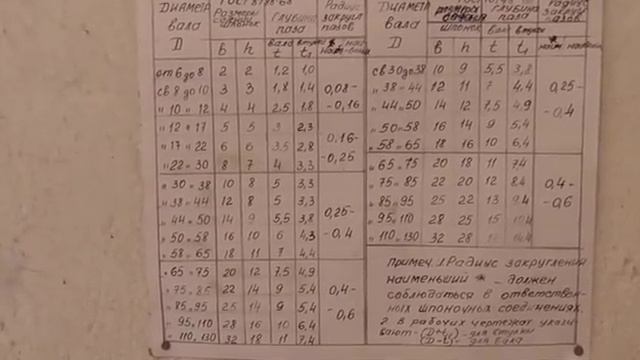 ГОСТ 8788-68
ДИАМЕТР вала D | Размеры сечений шпонок | ГЛУБИНА паза | Радиус закругл. пазов
b | h | вала t | втулки t₁ | наим.
от 6 до 8 | 2 | 2 | 1,2 | 1,0
св 8 до 10 | 3 | 3 | 1,8 | 1,4 | 0,08-
" 10 " 12 | 4 | 4 | 2,5 | 1,8 | -0,16
" 12 " 17 | 5 | 5 | 3 | 2,3 | 0,16-
" 17 " 22 | 6 | 6 | 3,5 | 2,8 | -0,25
" 22 " 30 | 8 | 7 | 4 | 3,3
" 30 " 38 | 10 | 8 | 5 | 3,3
" 38 " 44 | 12 | 8 | 5 | 3,3
" 44 " 50 | 14 | 9 | 5,5 | 3,8 | 0,25-
" 50 " 58 | 16 | 10 | 6 | 4,3 | -0,4
" 58 " 65 | 18 | 11 | 7 | 4,4
" 65 " 75 | 20 | 12 | 7,5 | 4,9
" 75 " 85 | 22 | 14 | 9 | 5,4 | 0,4-
" 85 " 95 | 25 | 14 | 9 | 5,4 | -0,6
" 95 " 110 | 28 | 16 | 10 | 6,4
" 110 " 130 | 32 | 18 | 11 | 7,4
ДИАМЕТР вала D | сечений шпонок | глубина паза | Радиус закругл. пазов
b | h | вала t | втулки t₁
св 30 до 38 | 10 | 9 | 5,5 | 3,8
" 38 " 44 | 12 | 11 | 7 | 4,4 | 0,25-
" 44 " 50 | 14 | 12 | 7,5 | 4,9 | -0,4
" 50 " 58 | 16 | 14 | 9 | 5,4
" 58 " 65 | 18 | 16 | 10 | 6,4
" 65 " 75 | 20 | 18 | 11 | 7,4
" 75 " 85 | 22 | 20 | 12 | 8,4 | 0,4-
" 85 " 95 | 25 | 22 | 13 | 9,4 | -0,6
" 95 " 110 | 28 | 25 | 15
" 110 " 130 | 32 | 28
Примеч. 1. Радиус закруглений
наименьший * - должен
соблюдаться в ответствен-
ных шпоночных соединениях.
2. В рабочих чертежах указы-
вают - (D+t₁) - для втулки
(D-t) - для вала